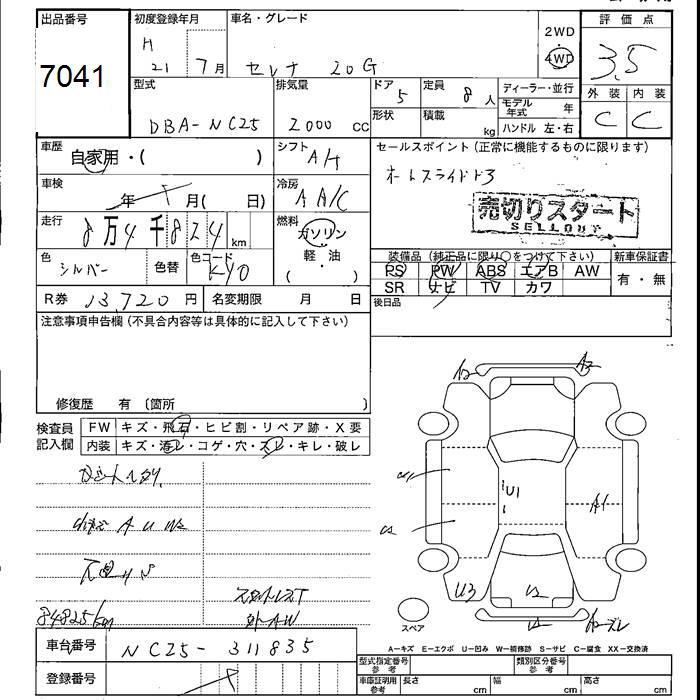 出品番号
7041
初度登録年月
H
21 7月
車名・グレード
セレナ 20G
2WD
4WD
評価点
3.5
外装 内装
C C
型式
DBA-NC25
排気量
2000 cc
ドア 5
形状
定員 8人
積載 kg
ディーラー・並行
モデル年式 年
ハンドル 左・右
車歴
自家用・( )
シフト
A/T
セールスポイント (正常に機能するものに限ります)
オートスライドドア
売切りスタート
SELLOUT
車検
年 月( 日)
冷房
A A/C
走行
8万4千824 km
燃料
ガソリン
軽・油
( )
色
シルバー
色替
色コード
KY0
装備品 (純正品に限り○をつけて下さい)
PS PW ABS エアB AW
SR ナビ TV カワ
新車保証書
有・無
後日品
R券 13,720円
名変期限 月 日
注意事項申告欄 (不具合内容等は具体的に記入して下さい)
修復歴 有 〔箇所 〕
検査員記入欄
FW キズ・飛石・ヒビ割・リペア跡・X要
内装 キズ・汚レ・コゲ・穴・スレ・キレ・破レ
84825km
スタットレスT
外AW
A2 A2
U1
A1
U3
U2
スペア
A-キズ E-エクボ U-凹み W-補修跡 S-サビ C-腐食 XX-交換済
車台番号
NC25-311835
登録番号
型式指定番号 参考
類別区分番号 参考
車庫証明用 参考
長さ cm
幅 cm
高さ cm